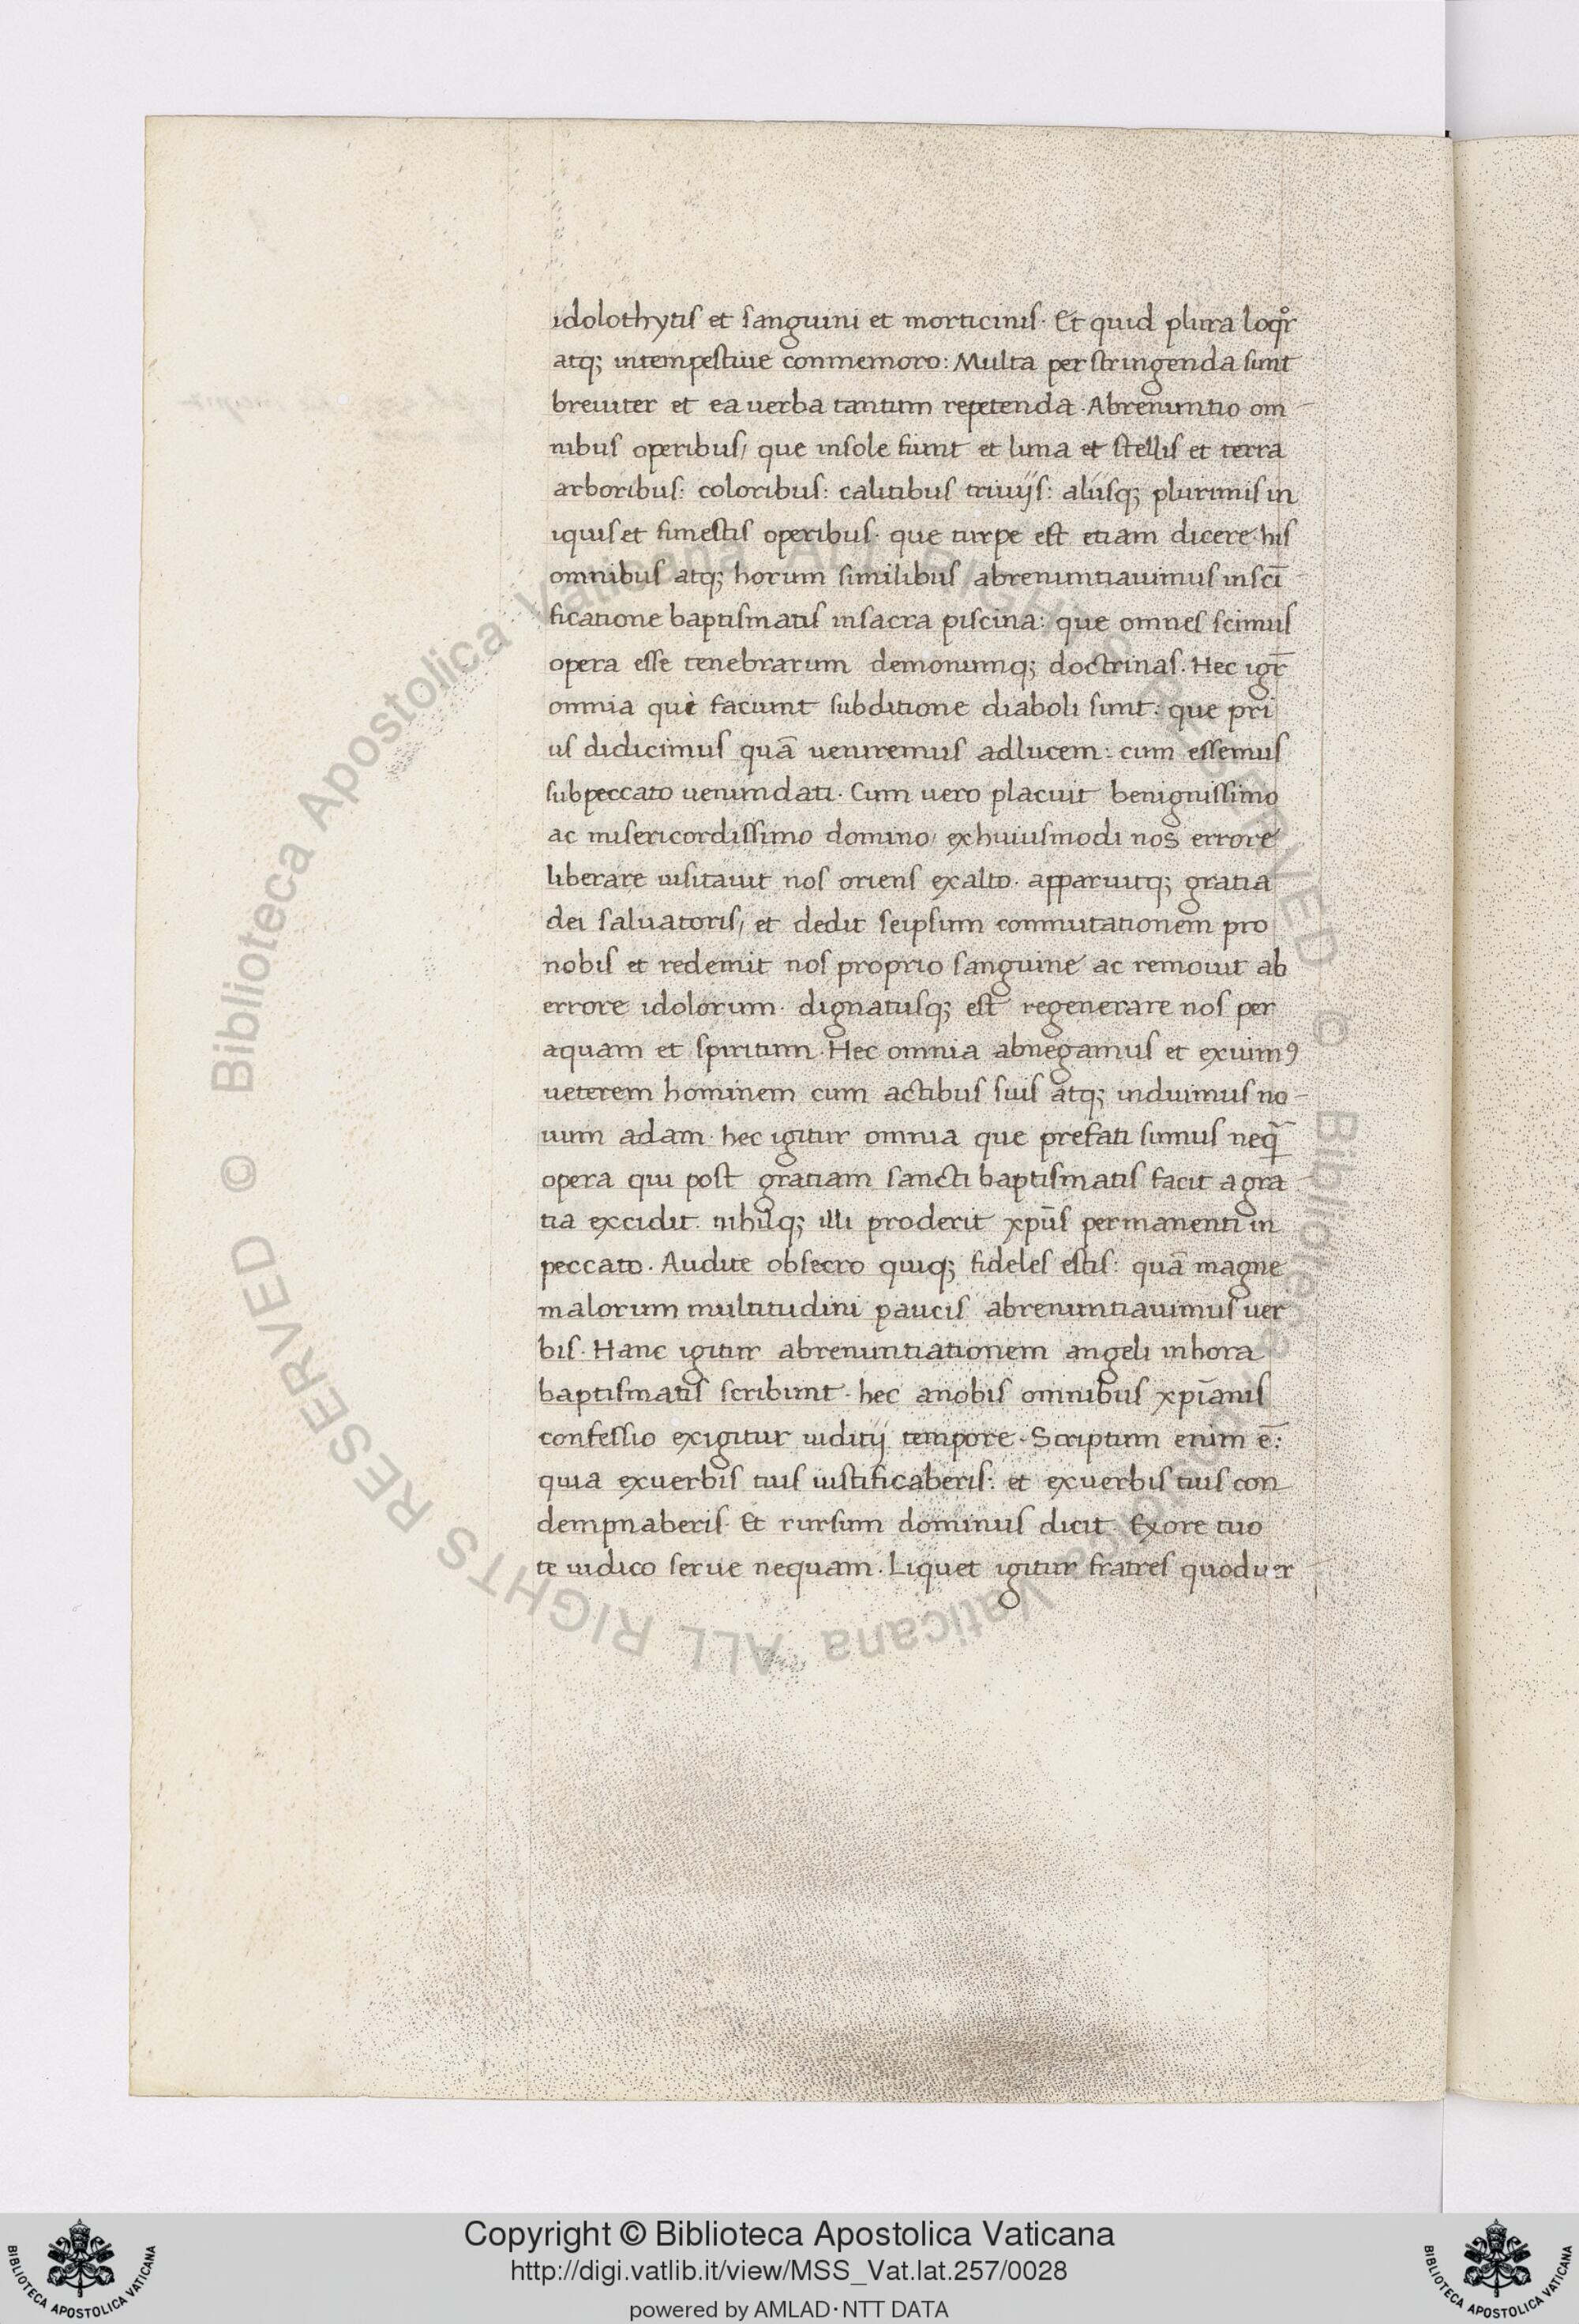 idolothytis et sanguini et morticinis. Et quid plura loqr̊
atq; intempestiue conmemoro: Multa perstringenda sunt
breuiter et ea uerba tantum repetenda. Abrenuntio om-
nibus operibus, que insole fiunt et luna et stellis et terra
arboribus: coloribus: calitibus triuijs: aliisq; plurimis in
iquis et funestis operibus. que turpe est etiam dicere. his
omnibus atq; horum similibus abrenuntiauimus in sci̅-
ficatione baptismatis insacra piscina: que omnes scimus
opera esse tenebrarum demonumq; doctrinas. Hec igr̅
omnia que faciunt subditione diaboli sunt: que pri
us didicimus qua̅ ueniremus adlucem: cum essemus
subpeccato uenundati. Cum uero placuit benignissimo
ac misericordissimo domino, exhuiusmodi nos errore
liberare uisitauit nos oriens exalto. apparuitq; gratia
dei saluatoris, et dedit seipsum commutationem pro
nobis et redemit nos proprio sanguine ac remouit ab
errore idolorum. dignatusq; est regenerare nos per
aquam et spiritum. Hec omnia abnegamus et exuimꝰ
ueterem hominem cum actibus suis atq; induimus no-
uum adam. hec igitur omnia que prefati sumus neq̅
opera qui post gratiam sancti baptismatis facit agra
tia excidit. nihilq; illi proderit xpu̅s permanenti in
peccato. Audite obsecro quiq; fideles estis: qua̅ magne
malorum multitudini paucis abrenuntiauimus uer
bis. Hanc igitur abrenuntiationem angeli inhora
baptismatis scribunt. hec anobis omnibus xpi̅anis
confessio exigitur iuditij tempore. Scriptum enim e̅:
quia exuerbis tuis iustificaberis: et exuerbis tuis con
dempnaberis. Et rursum dominus dicit. Exore tuo
te iudico serue nequam. Liquet igitur fratres quoduer-
© Biblioteca Apostolica Vaticana ALL RIGHTS RESERVED © Biblioteca Apostolica Vaticana ALL RIGHTS RESERVED
Copyright © Biblioteca Apostolica Vaticana
http://digi.vatlib.it/view/MSS_Vat.lat.257/0028
powered by AMLAD·NTT DATA
BIBLIOTECA APOSTOLICA VATICANA
BIBLIOTECA APOSTOLICA VATICANA